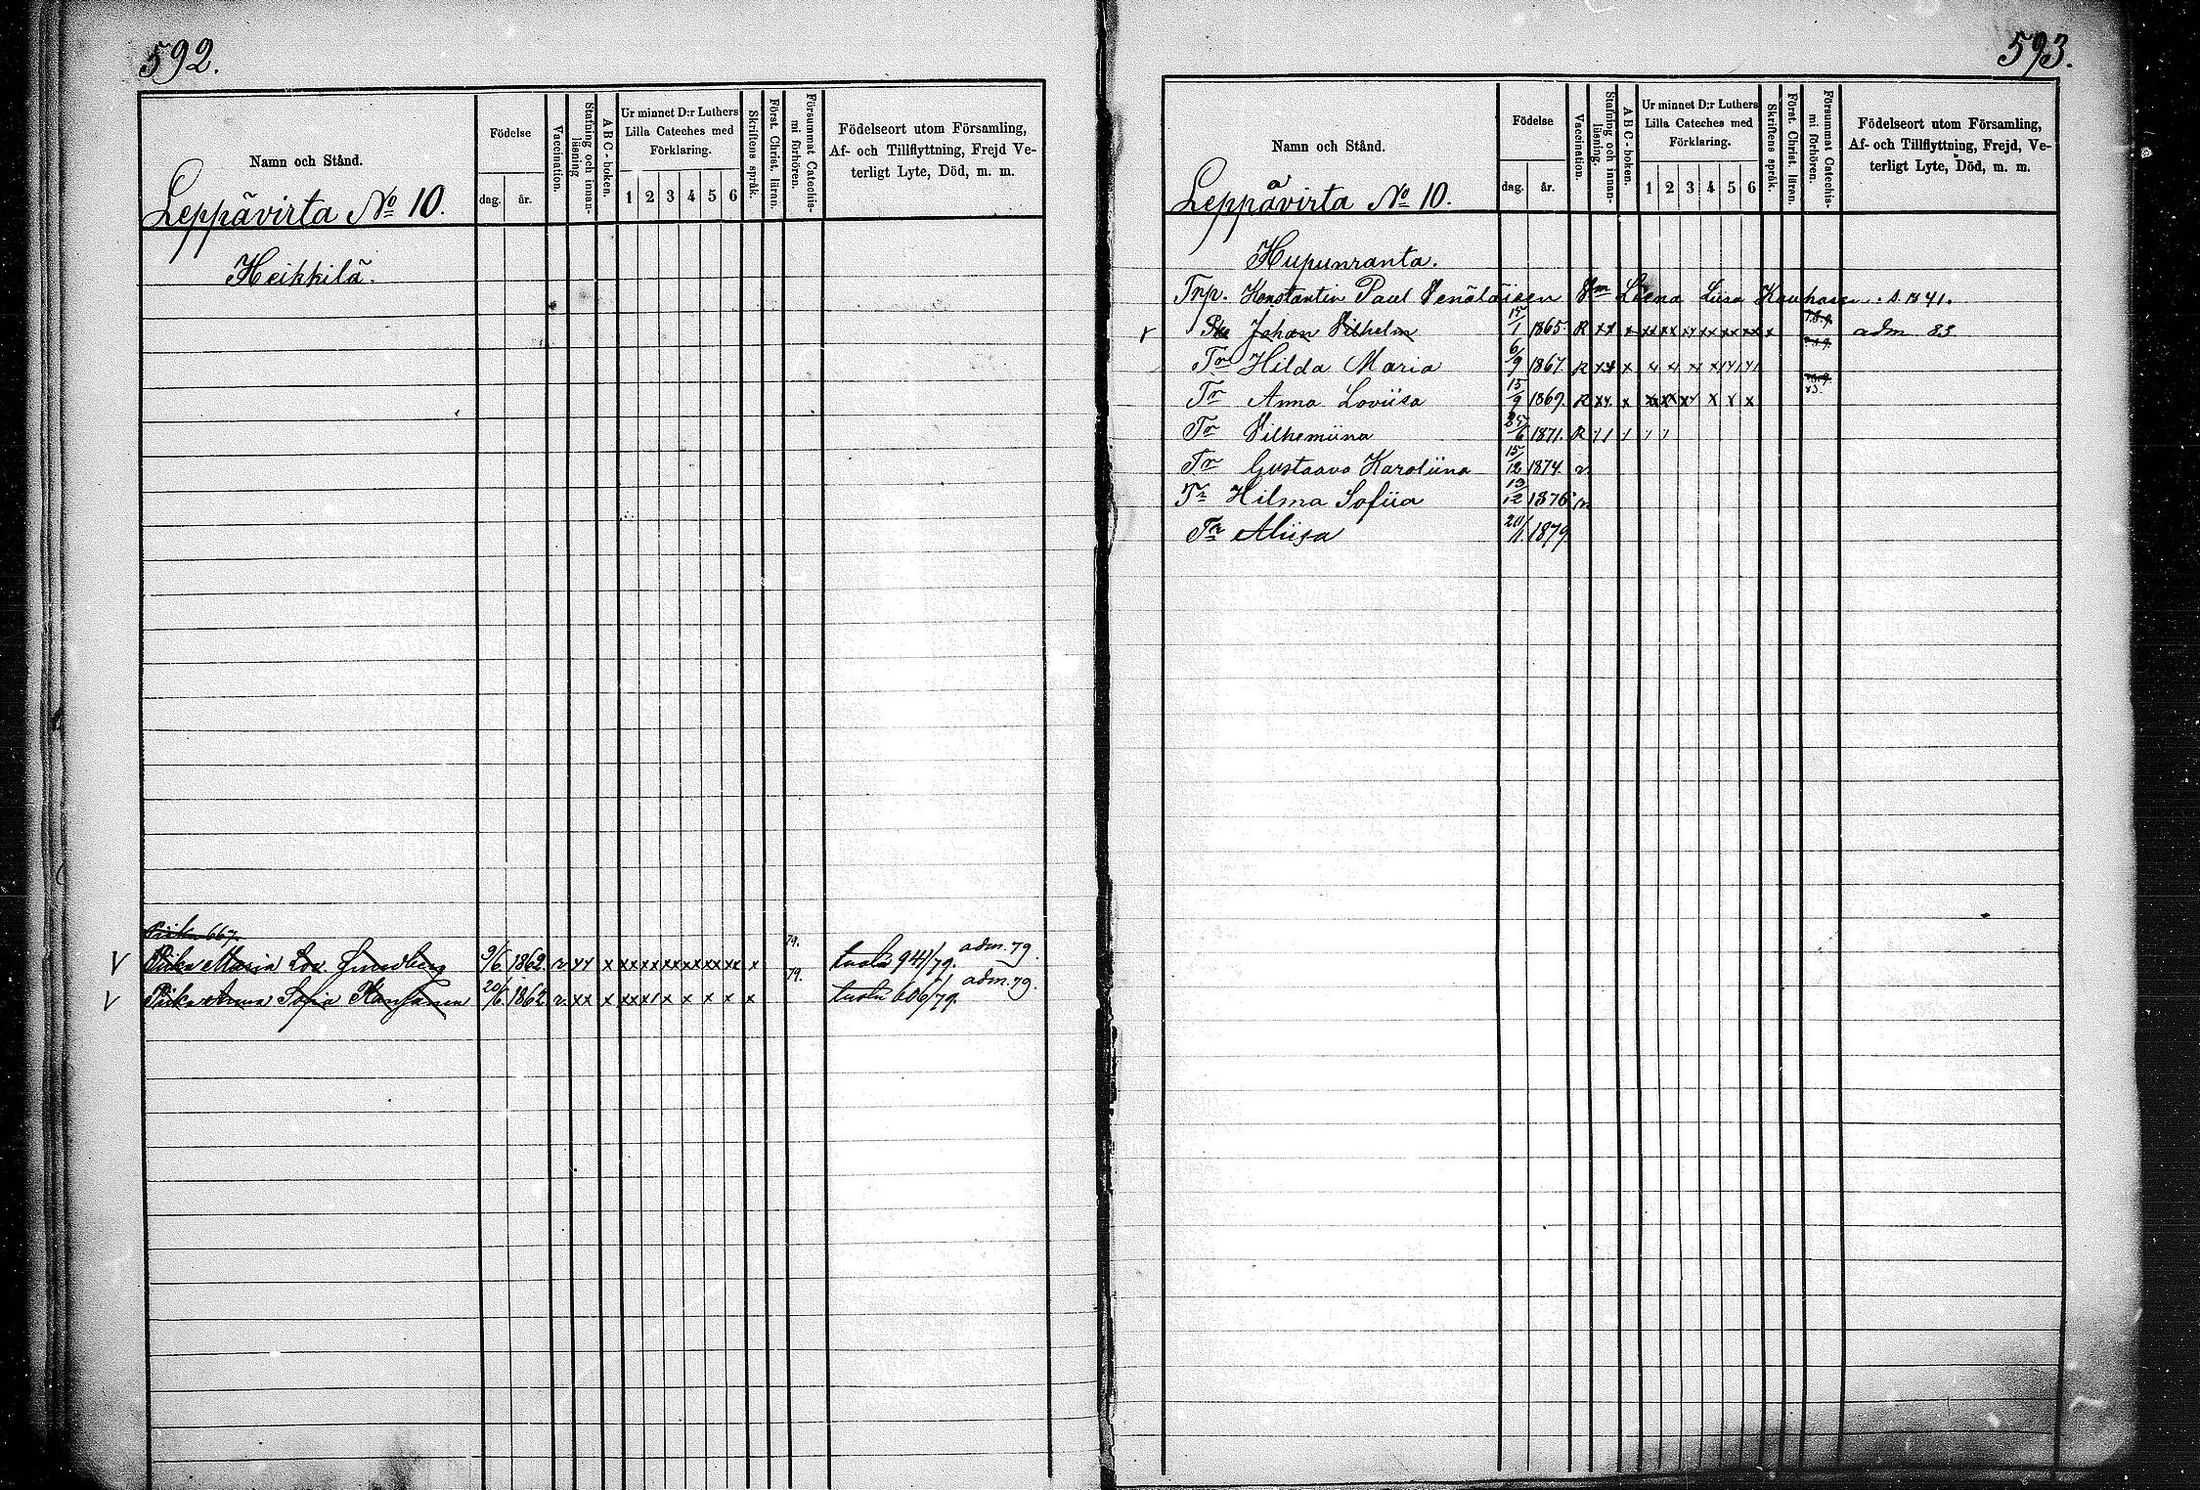 592.
Namn och Stånd.
Födelse
dag.
år.
Vaccination.
Stafning och innan-
läsning
ABC-boken.
Ur minnet D:r Luthers
Lilla Cateches med
Förklaring.
1 2 3 4 5 6
Skriftens språk.
Först. Christ. läran.
Försummat Catechis-
mi förhören.
Födelseort utom Församling,
Af- och Tillflyttning, Frejd Ve-
terligt Lyte, Död, m. m.
Leppävirta No 10.
Heikkilä.
667.
V Piika Maria Lov. 9/6 1862. v xx x xx xx xx xx xx xx x 79. 944/79. adm. 79.
V Piika Anna Sofia 20/6 1862 v. xx x x x x x x 79. 606/79. adm. 79.
593.
Namn och Stånd.
Födelse
dag.
år.
Vaccination.
Stafning och innan-
läsning.
ABC-boken.
Ur minnet D:r Luthers
Lilla Cateches med
Förklaring.
1 2 3 4 5 6
Skriftens språk.
Först. Christ. läran.
Försummat Catechis-
mi förhören.
Födelseort utom Församling,
Af- och Tillflyttning, Frejd, Ve-
terligt Lyte, Död, m. m.
Leppävirta No 10.
Hupunranta.
Trp. Konstantin Paul Venäläisen Vm Leena Liisa . s. 1841.
v Johan Vilhelm 15/1 1865 R xx x xx xx xx xx xx xx x adm 83
Tr Hilda Maria 6/9 1867. R xx x
Tr Anna Loviisa 15/9 1869. R xx. x x x x
Tr Vilhemiina 25/6 1871. R
Tr Gustaava Karoliina 15/12 1874 v.
Tr Hilma Sofiia 13/12 1876 v.
Tr Aliisa 20/1. 1879.